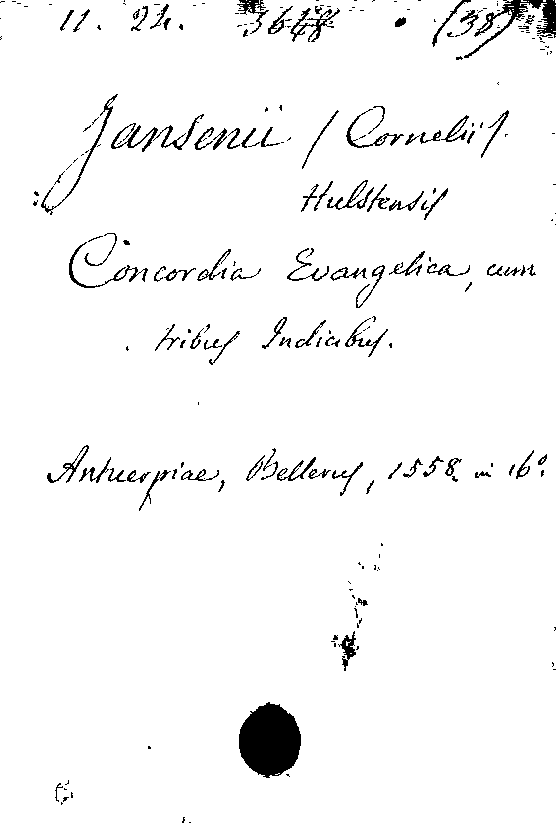 11. 24. 3648 • (38)
Jansenii (Cornelii).
Hulstensis
Concordia Evangelica, cum
tribus Indicibus.
Antuerpiae, Bellerus, 1558. in 16°.